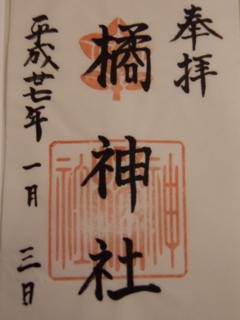 奉拝
橘神社
平成廿七年 一月 三日